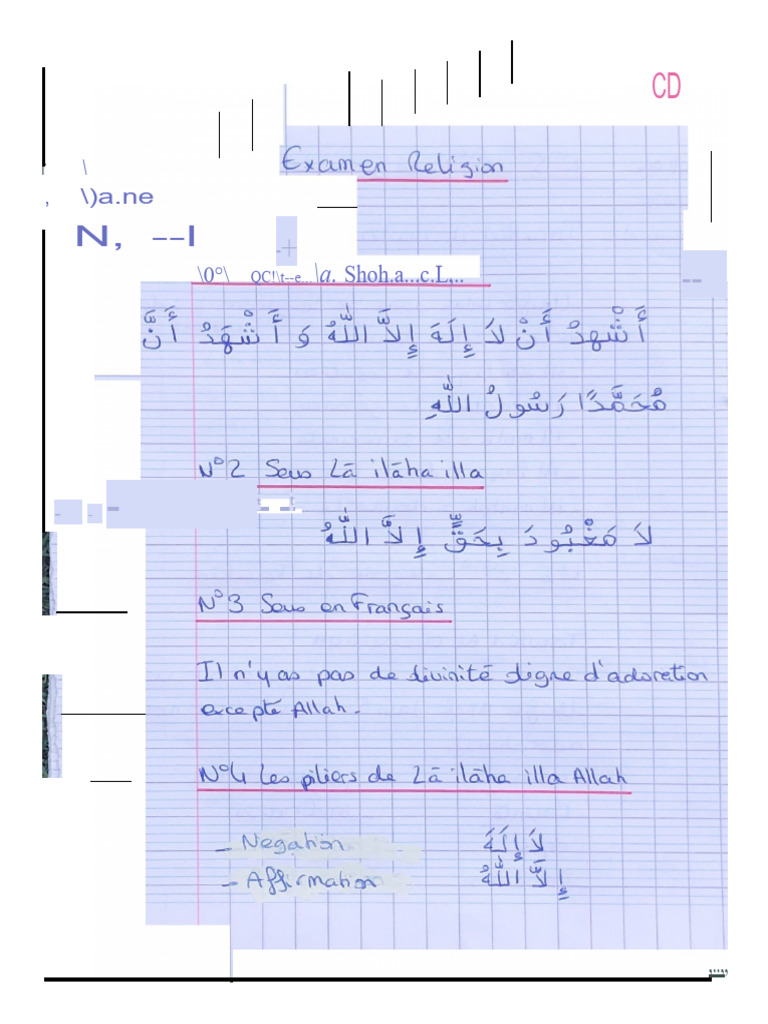 CD
Examen Religion
\)a.ne
N, --l
\0°\ QC!\t--e... \a. Shoh.a...c.L,..
أَشْهدُ أَنْ لاَ إِلَهَ إِلاَّ اللَّهُ وَ أَشْهَدُ أَنَّ
مُحَمَّدًا رَسُولُ اللَّهِ
N°2 Sens Lā ilāha illa
لاَ مَعْبُودَ بِحَقٍّ إِلاَّ اللَّهُ
N°3 Sens en Français
Il n'y as pas de divinité digne d'adoration
excepté Allah.
N°4 Les piliers de Lā ilāha illa Allah
- Negation لاَ إِلَهَ
- Affirmation إِلاَّ اللَّهُ